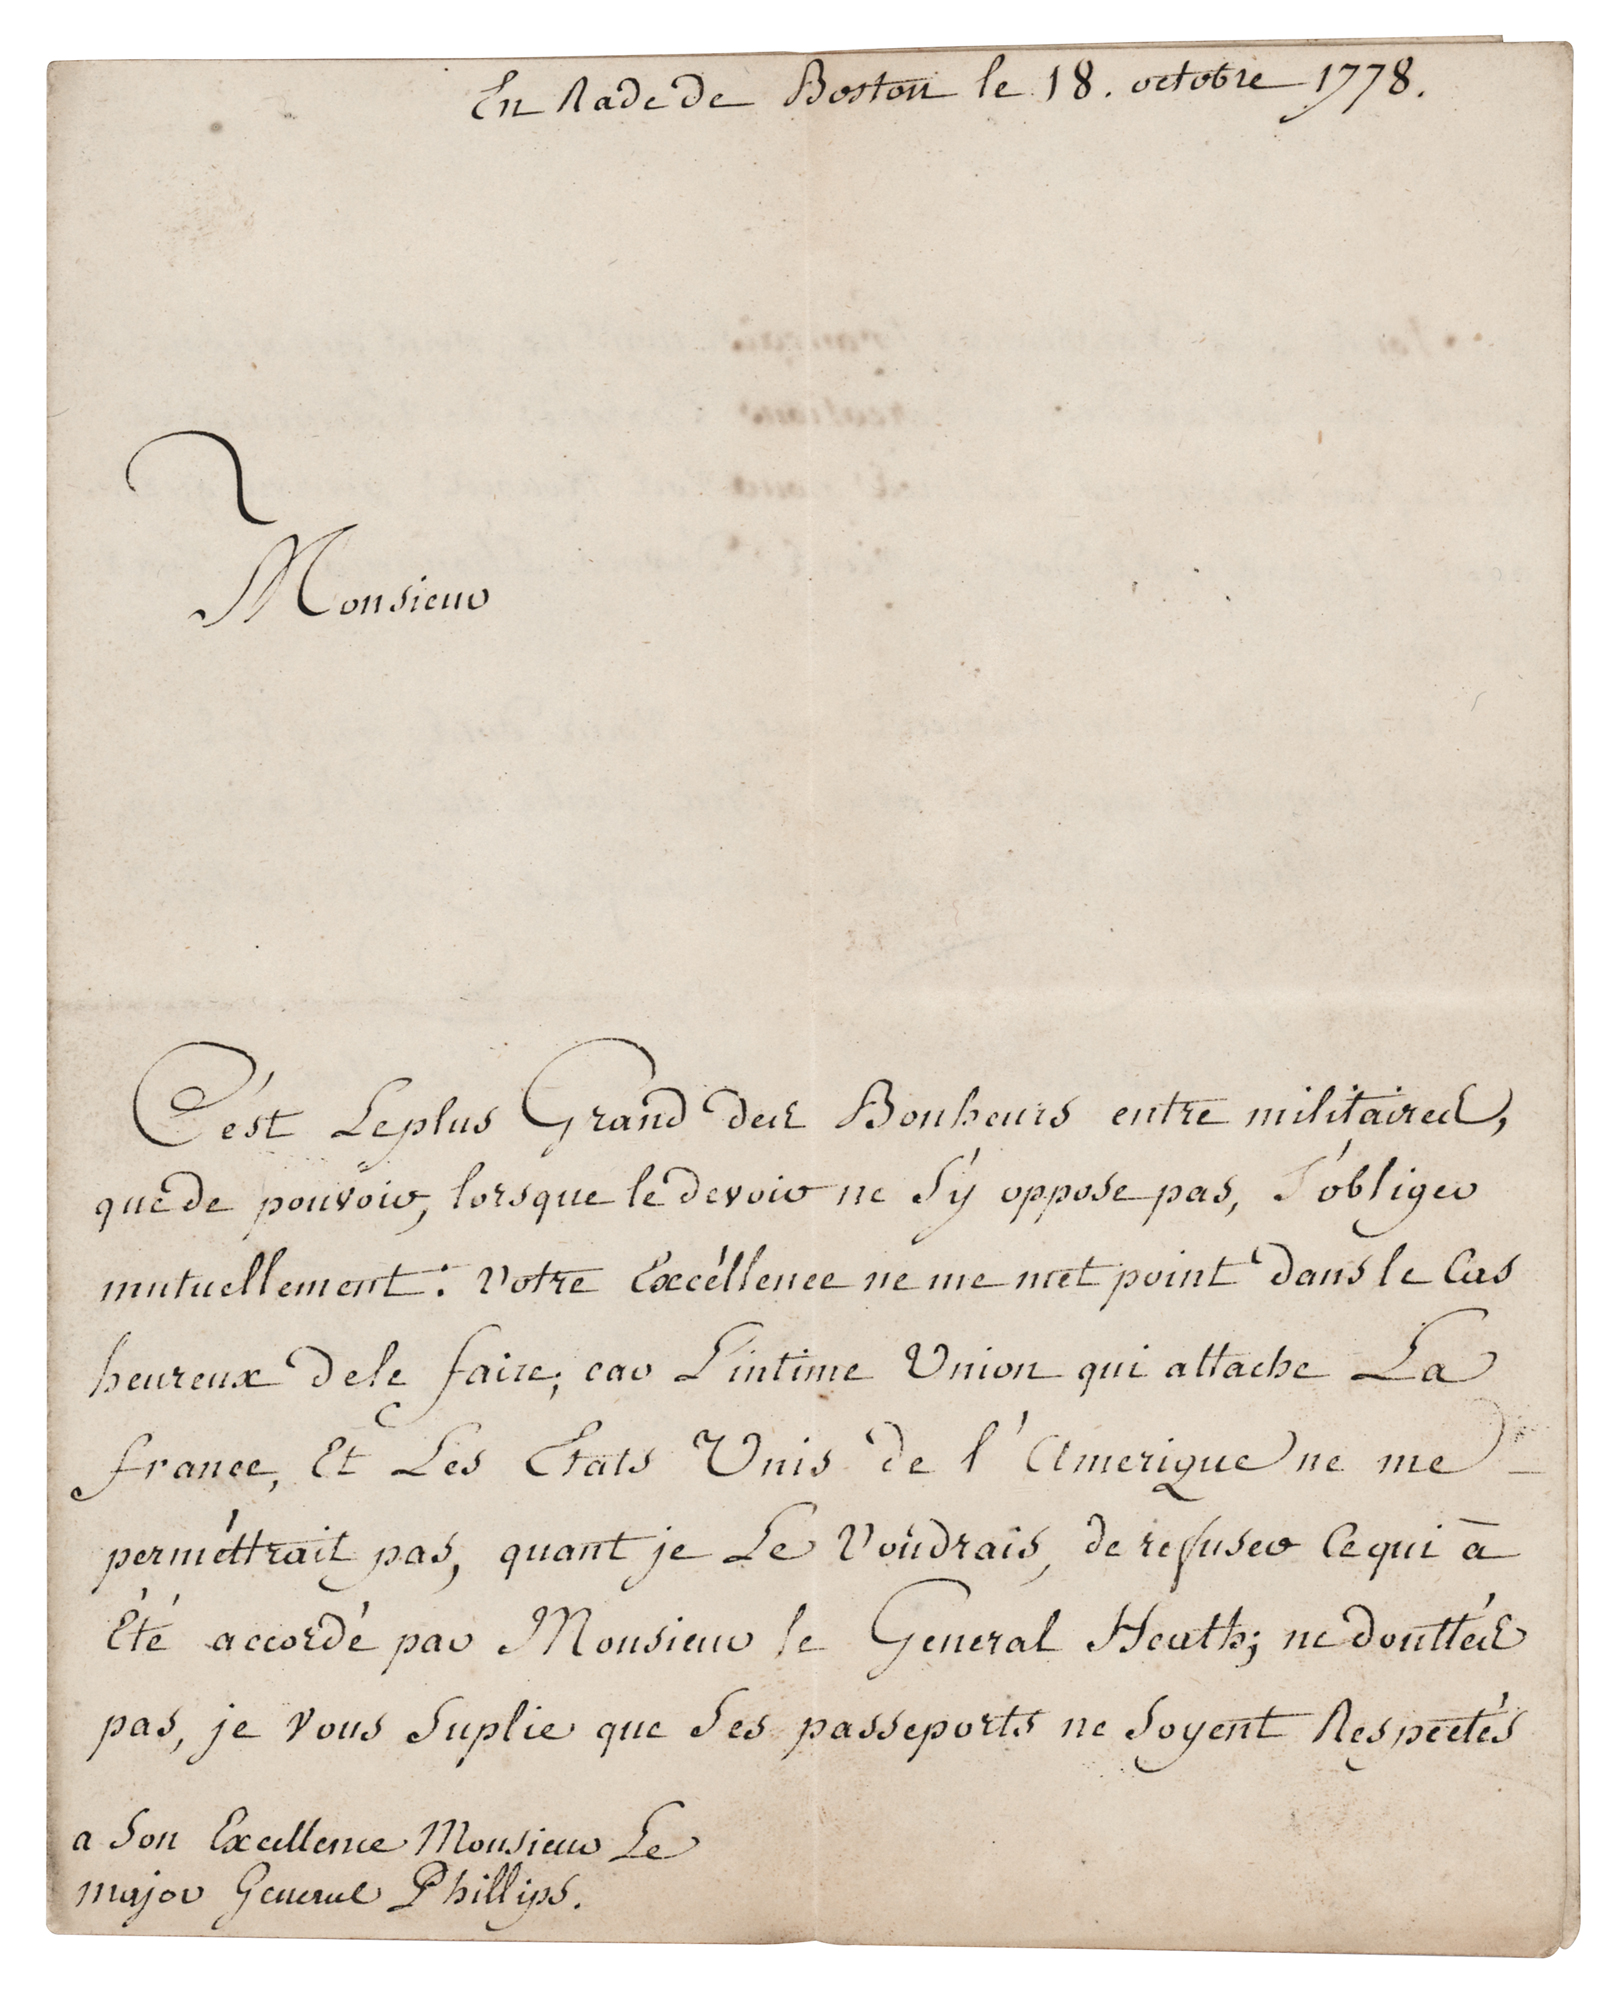 En Rade de Boston le 18. octobre 1778.
Monsieur
C'ést Le plus Grand des Bonheurs entre militaires,
que de pouvoir, lorsque le devoir ne s'y oppose pas, s'obliger
mutuellement: votre Excéllence ne me met point dans le Cas
heureux de le faire, car L'intime Union qui attache La
france, Et Les Etats Unis de l'Amerique ne me
perméttrait pas, quant je Le voudrais, de refuser Ce qui à
Eté accordé par Monsieur le General Heath; ne douttés
pas, je vous suplie que ses passeports ne soyent Respectés
a son Excellence Monsieur Le
major General Phillips.